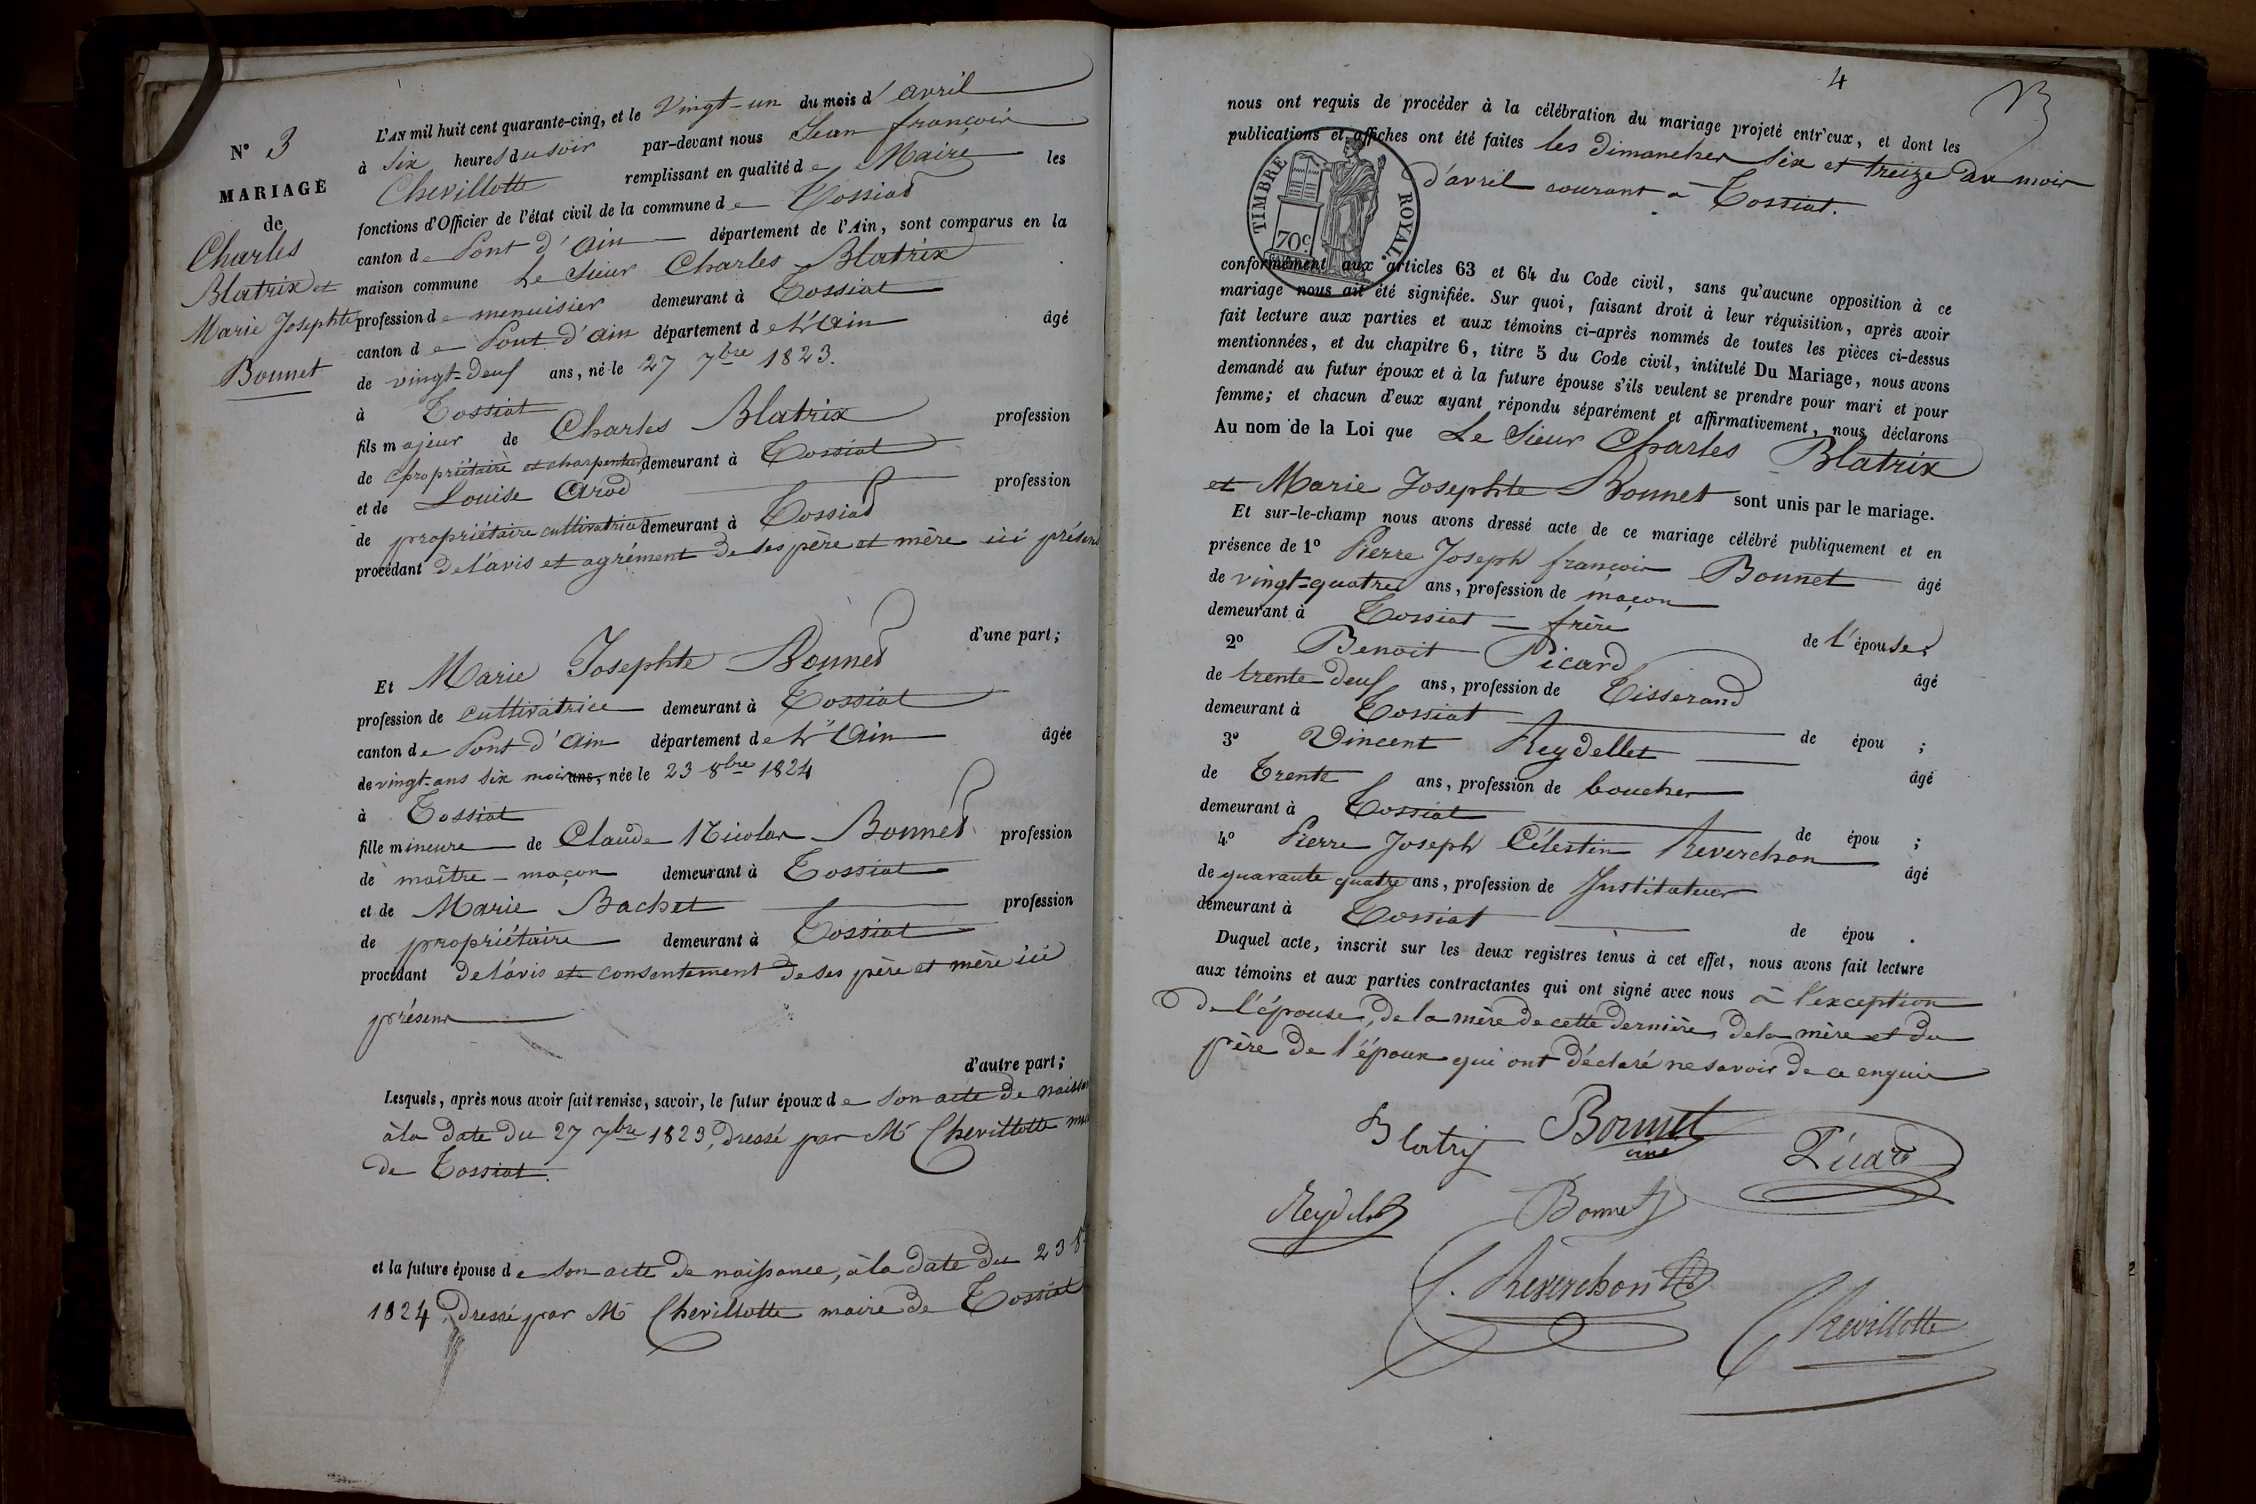 N° 3
MARIAGE
de
Charles
Blatrix et
Marie Josephte
Bonnet
L'AN mil huit cent quarante-cinq, et le Vingt-un du mois d'avril
à six heures du soir par-devant nous Jean françois
Chevillotte remplissant en qualité de Maire les
fonctions d'Officier de l'état civil de la commune de Tossiat
canton de Pont d'ain département de l'Ain, sont comparus en la
maison commune Le Sieur Charles Blatrix
profession de menuisier demeurant à Tossiat
canton de Pont d'ain département de l'ain âgé
de vingt-deux ans, né le 27 7bre 1823.
à Tossiat
fils majeur de Charles Blatrix profession
de propriétaire et charpentier demeurant à Tossiat
et de Louise Arod profession
de propriétaire cultivatrice demeurant à Tossiat
procédant de l'avis et agrément de ses père et mère ici présens
d'une part;
Et Marie Josephte Bonnet
profession de cultivatrice demeurant à Tossiat
canton de Pont d'ain département de l'Ain âgée
de vingt-ans six mois ans, née le 23 8bre 1824
à Tossiat
fille mineure de Claude Nicolas Bonnet profession
de maître-maçon demeurant à Tossiat
et de Marie Bachet profession
de propriétaire demeurant à Tossiat
procédant de l'avis et consentement de ses père et mère ici
présens
d'autre part;
Lesquels, après nous avoir fait remise, savoir, le futur époux de son acte de
à la date du 27 7bre 1823, dressé par Mr Chevillotte
de Tossiat.
et la future épouse de son acte de naissance, à la date du 23 8
1824, dressé par Mr Chevillotte maire de Tossiat
4
nous ont requis de procéder à la célébration du mariage projeté entr'eux, et dont les
publications et affiches ont été faites les dimanches six et treize du mois
d'avril courant à Tossiat.
TIMBRE ROYAL.
70c
conformément aux articles 63 et 64 du Code civil, sans qu'aucune opposition à ce
mariage nous ait été signifiée. Sur quoi, faisant droit à leur réquisition, après avoir
fait lecture aux parties et aux témoins ci-après nommés de toutes les pièces ci-dessus
mentionnées, et du chapitre 6, titre 5 du Code civil, intitulé Du Mariage, nous avons
demandé au futur époux et à la future épouse s'ils veulent se prendre pour mari et pour
femme; et chacun d'eux ayant répondu séparément et affirmativement, nous déclarons
Au nom de la Loi que Le Sieur Charles Blatrix
et Marie Josephte Bonnet sont unis par le mariage.
Et sur-le-champ nous avons dressé acte de ce mariage célébré publiquement et en
présence de 1° Pierre Joseph françois Bonnet âgé
de vingt-quatre ans, profession de maçon
demeurant à Tossiat frère de l'épouse;
2° Benoit Picard âgé
de trente-deux ans, profession de Tisserand
demeurant à Tossiat de épou ;
3° Vincent Reydellet âgé
de Trente ans, profession de boucher
demeurant à Tossiat de épou ;
4° Pierre Joseph Célestin Reverchon âgé
de quarante quatre ans, profession de Instituteur
demeurant à Tossiat de épou .
Duquel acte, inscrit sur les deux registres tenus à cet effet, nous avons fait lecture
aux témoins et aux parties contractantes qui ont signé avec nous à l'exception
de l'épouse, de la mère de cette dernière, de la mère et du
père de l'époux qui ont déclaré ne savoir de ce enquis
Blatrix Bonnet
Picard
Reydellet Bonnet
Reverchon
Chevillotte